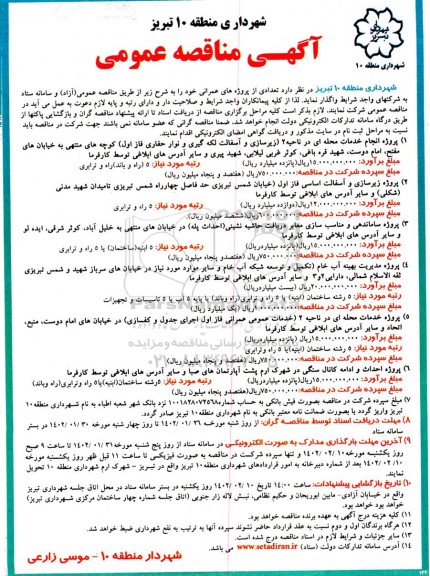 شهرداری منطقه ۱۰ تبریز
آگهی مناقصه عمومی
شهرداری منطقه ۱۰
شهرداری منطقه ۱۰ تبریز در نظر دارد تعدادی از پروژه های عمرانی خود را به شرح زیر از طریق مناقصه عمومی(آزاد) و سامانه ستاد
به شرکتهای واجد شرایط واگذار نماید. لذا از کلیه پیمانکاران واجد شرایط و صلاحیت دار و دارای رتبه و پایه لازم دعوت به عمل می آید در
مناقصه عمومی شرکت نمایند. لازم بذکر است کلیه مراحل برگزاری مناقصه از دریافت اسناد تا ارائه پیشنهاد مناقصه گران و بازگشایی پاکتها از
طریق درگاه سامانه تدارکات الکترونیکی دولت انجام خواهد شد. ضمنا مناقصه گرانی که عضو سامانه نمی باشند جهت شرکت در مناقصه باید
نسبت به مراحل ثبت نام در سایت مذکور و دریافت گواهی امضای الکترونیکی اقدام نمایند.
۱) پروژه انجام خدمات محله ای در ناحیه۲ (زیرسازی و آسفالت لکه گیری و نوار حفاری فاز اول) کوچه های منتهی به خیابان های
مفتح، امام دوست، شهید قره باغی، کوثر غربی لیلابی، شهید پیری و سایر آدرس های ابلاغی توسط کارفرما
مبلغ برآورد: ۱۵.۰۰۰.۰۰۰.۰۰۰ریال(پانزده میلیارد ریال) رتبه مورد نیاز: ۵ (راه و باند)راه و ترابری
مبلغ سپرده شرکت در مناقصه:۷۵۰.۰۰۰.۰۰۰ریال (هفتصد و پنجاه میلیون ریال)
۲) پروژه زیرسازی و آسفالت اساسی فاز اول (خیابان شمس تبریزی حد فاصل چهارراه شمس تبریزی تامیدان شهید مدنی
(شکلی) و سایر آدرس های ابلاغی توسط کارفرما
مبلغ برآورد: ۱۲.۰۰۰.۰۰۰.۰۰۰ریال(دوازده میلیارد ریال) رتبه مورد نیاز: ۵ راه و ترابری
مبلغ سپرده شرکت در مناقصه: ۶۰۰.۰۰۰.۰۰۰ریال(ششصد میلیون ریال)
۳) پروژه ساماندهی و مناسب سازی معابر دریافت حاشیه نشینی(احداث پله) در خیابان های منتهی به خلیل آباد، کوثر شرقی، ایده لو
و سایر آدرس های ابلاغی توسط کارفرما
مبلغ برآورد: ۱۵.۰۰۰.۰۰۰.۰۰۰ریال(پانزده میلیاردریال) رتبه مورد نیاز: ۵ ابنیه(ساختمان) یا ۵ راه و ترابری
مبلغ سپرده شرکت در مناقصه:۷۵۰.۰۰۰.۰۰۰ریال (هفتصد و پنجاه میلیون ریال)
۴) پروژه مدیریت بهینه آب خام (تکمیل و توسعه شبکه آب خام و سایر موارد مورد نیاز در خیابان های سرباز شهید و شمس تبریزی
ثقه الاسلام شمالی، دارایی۲و۳ و سایر آدرس های ابلاغی توسط کارفرما
مبلغ برآورد: ۲۰.۰۰۰.۰۰۰.۰۰۰ریال (بیست میلیاردریال)
رتبه مورد نیاز: ۵ رشته ساختمان (ابنیه) یا ۵ راه و ترابری(راه وباند) یا پایه ۵ آب یا ۵ تاسیسات و تجهیزات
مبلغ سپرده شرکت در مناقصه: ۱.۰۰۰.۰۰۰.۰۰۰ریال (یک میلیارد ریال)
۵) پروژه خدمات محله ای در ناحیه ۲ (خدمات عمومی عمرانی فاز اول اجرای جدول و کفسازی) در خیابان های امام دوست، منبع،
اتحاد و سایر آدرس های ابلاغی توسط کارفرما
مبلغ برآورد: ۱۵.۰۰۰.۰۰۰.۰۰۰ریال(پانزده میلیاردریال)
رتبه مورد نیاز: ۵ رشته ساختمان (ابنیه)یا ۵ راه وترابری
مبلغ سپرده شرکت در مناقصه: ۷۵۰.۰۰۰.۰۰۰ریال(هفتصد و پنجاه میلیون ریال)
۶) پروژه احداث و ادامه کانال سنگی در شهرک ارم پشت آپارتمان های صبا و سایر آدرس های ابلاغی توسط کارفرما
مبلغ برآورد: ۱۵.۰۰۰.۰۰۰.۰۰۰ریال(پانزده میلیاردریال) رتبه مورد نیاز: ۵رشته ساختمان(ابنیه)یا ۵ راه و ترابری(راه وباند)
مبلغ سپرده شرکت در مناقصه: ۷۵۰.۰۰۰.۰۰۰ریال(هفتصد و پنجاه میلیون ریال)
۷) مبلغ سپرده شرکت در مناقصه بصورت فیش بانکی به حساب شماره نزد بانک شهر شعبه اطباء به نام شهرداری منطقه ۱۰
تبریز واریز گردد یا بصورت ضمانت نامه معتبر بانکی به نام شهرداری منطقه۱۰ تبریز صادر گردد.
۸) مهلت دریافت اسناد توسط مناقصه گران: از روز شنبه مورخه ۱۴۰۲/۰۱/۲۶ تا روز چهار شنبه مورخه ۱۴۰۲/۰۱/۳۰ در بستر
سامانه ستاد
۹) آخرین مهلت بارگذاری مدارک به صورت الکترونیکی در سامانه ستاد از روز پنج شنبه مورخه ۱۴۰۲/۰۱/۳۱ تا ساعت ۹ صبح
روز یکشنبه مورخه ۱۴۰۲/۰۲/۱۰ و تنها سپرده شرکت در مناقصه به صورت فیزیکی تا ساعت ۱۱ قبل ظهر روز یکشنبه مورخه
۱۴۰۲/۰۲/۱۰ بعد از شماره دبیرخانه به امور قراردادهای شهرداری منطقه ۱۰ تبریز واقع در تبریز - شهرک ارم شهرداری منطقه ۱۰ تحویل
نمایند.
۱۰) تاریخ بازگشایی پیشنهادات: ساعت ۱۴:۰۰ تاریخ ۱۴۰۲/۰۲/۱۰ روز یکشنبه در بستر سامانه ستاد در محل اتاق جلسه شهرداری تبریز
واقع در خیابان آزادی- مابین ابوریحان و حکیم نظامی، نبش لاله زار جنوبی (اتاق جلسه شماره چهار ساختمان مرکزی شهرداری تبریز)
خواهد بود خواهد بود.
۱۱) کلیه هزینه درج آگهی به عهده برنده مناقصه خواهد بود.
۱۲) هرگاه برندگان اول و دوم نسبت به عقد قرارداد حاضر نشوند سپرده آنها به ترتیب به نفع شهرداری ضبط خواهد شد.
۱۳) سایر جزئیات و شرایط لازم در اسناد مناقصه درج شده است.
۱۴) آدرس سامانه تدارکات دولت (ستاد) www.setadiran.ir می باشد.
شهردار منطقه ۱۰ - موسی زارعی